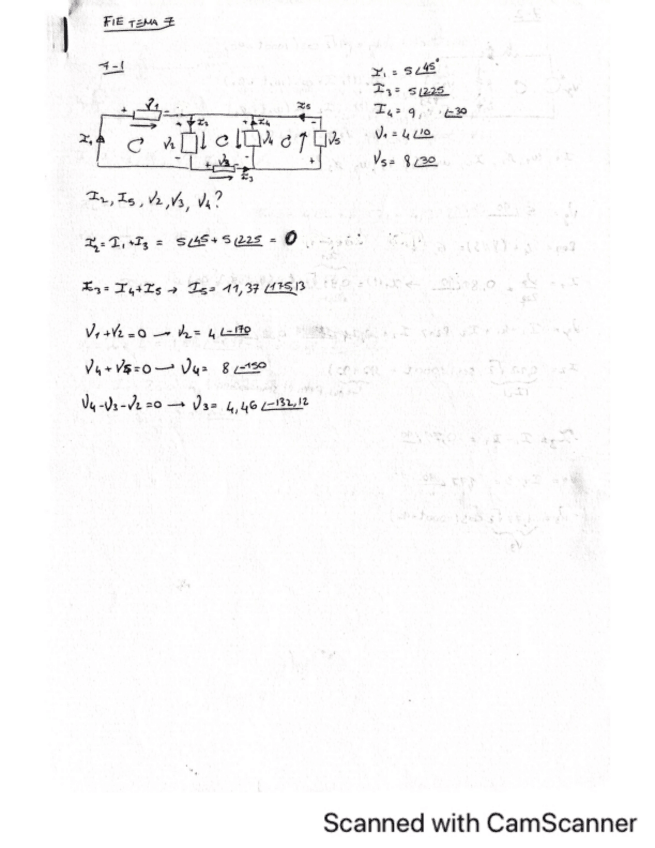 FIE TEMA 7
7-1
I₁ = 5∠45°
I₃ = 5∠225
I₄ = 9, ∠-30
V₁ = 4∠10
V₅ = 8∠30
+ V₁ -
I₁
V₂
I₂
I₄
V₄
I₅
V₅
V₃
I₃
I₂, I₅, V₂, V₃, V₄?
I₂ = I₁ + I₃ = 5∠45 + 5∠225 = 0
I₃ = I₄ + I₅ → I₅ = 11,37∠175,13
V₁ + V₂ = 0 → V₂ = 4∠-170
V₄ + V₅ = 0 → V₄ = 8∠-150
V₄ - V₃ - V₂ = 0 → V₃ = 4,46∠-132,12
Scanned with CamScanner